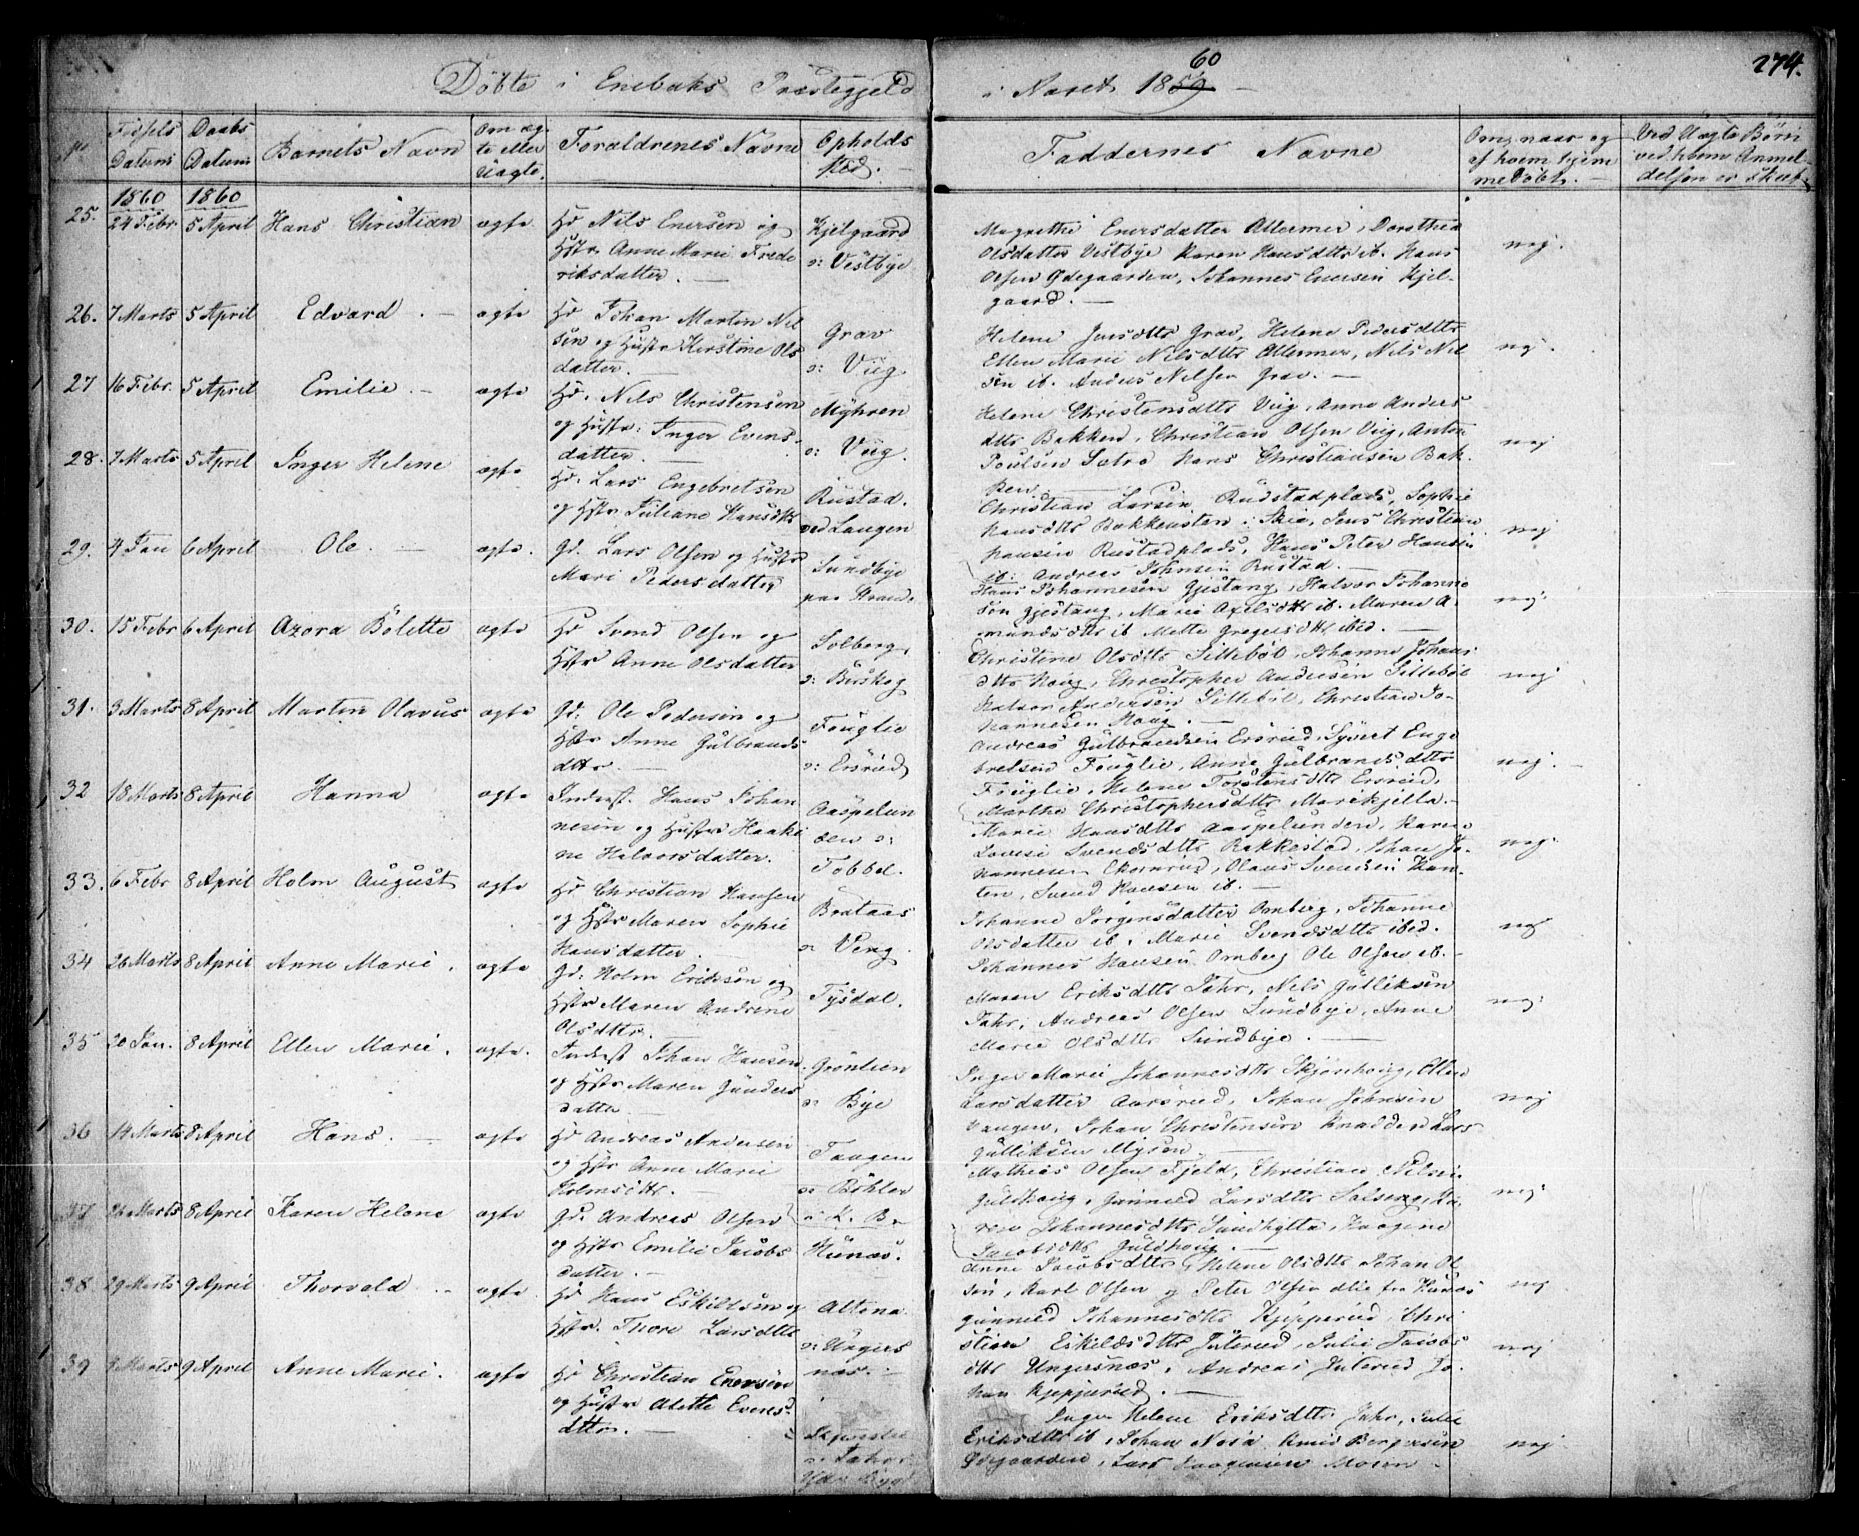 Döbte i Enebaks Præstegjeld i Aaret 1859 60
274.
No
Födsels Datum
Daabs Datum
Barnets Navn
Om ægte eller Uægte.
Forældrenes Navne
Opholds Sted.
Faddernes Navne
Om, naar og af hvem hjemmedöbt.
Ved Uægte Börn ved hvem Anmeldelsen er skeet
1860 1860
25. 24 Febr 5 April Hans Christian ægte
Hd Nils Enersen og
Hstr Anne Marie Frede
riksdatter. —
Kjelgaard
o: Vestbye
Magrethe Enersdatter Allermer, Dorothea
Olsdatter Vestbye Karen Hansdttr ib. Hans
Olsen Ödegaarden, Johannes Enersen Kjel-
gaard. —
nej.
26. 7 Marts 5 April Edvard. — ægte
Hd Johan Martin Nil
sen og Hustr Kirstine Ols
datter. —
Grav
o: Viig
Helene Jensdttr Grav, Helene Pedersdttr
Ellen Marie Nilsdttr Allermer, Nils Nil
sen ib. Anders Nilsen Grav. —
nej.
27 16 Febr. 5 April Emilie. — ægte
Hd. Nils Christensen
og Hustr: Inger Evens-
datter. —
Myhren
o: Viig.
Helene Christensdttr Viig, Anne Anders
dttr Bakken, Christian Olsen Viig, Anton
Poulsen Sætre Hans Christiansen Bak-
ken —
nej
28. 7 Marts 5 April Inger Helene ægte
Hd. Lars Engebretsen
og Hstr Juliane Hansdttr
Rustad.
ved Langen
Christian Larsen Rudstadplads, Sophie
Hansdttr Bakkensten i Skie, Jens Christian
Hansen Rustadplads, Hans Peter Hansen
ib: Andreas Johnsen Rustad. —
nej
29. 4 Jan 6 April Ole. — ægte.
Gd. Lars Olsen og Hustr
Mari Pedersdatter
Sundbye
paa Strand.
Hans Johannesen Gjestang, Halvor Johanne
sen Gjestang, Marie Axelsdttr ib. Maren A-
mundsdttr ib Mette Gregersdttr ibid. —
nej.
30. 15 Febr 6 April Azora Bolette ægte
Hd Svend Olsen og
Hstr Anne Olsdatter
Solberg
o: Buskog
Christine Olsdttr Silleböl, Johanne Johans
dttr Houg, Christopher Andersen Silleböl
Halvor Andersen Silleböl, Christian Jo-
hannesen Houg. —
nej
31. 3 Marts 8 April Martin Olavus ægte
Gd: Ole Pedersen og
Hstr Anne Gulbrands
dttr. —
Fouglie
o: Ersrud
Andreas Gulbrandsen Ersrud, Syvert Enge
bretsen Fouglie, Anne Gulbrandsdttr
Fouglie, Helene Torstensdttr Ersrud,
Marthe Christophersdttr Marikjella. —
nej.
32 18 Marts 8 April Hanna ægte
Inderst. Hans Johan
nesen og Hustr Haaki
ne Halvorsdatter.
Aaspelun
den o:
Tobbel.
Marie Hansdttr Aaspelunden, Karen
Lovise Svendsdttr Rakkestad, Johan Jo-
hannesen Ekornrud, Olaus Svendsen
Svend Hansen ib. —
nej.
33. 6 Febr 8 April Holm August ægte
Hd Christian Hansen
og Hstr Maren Sophie
Hansdatter.
Brataas
o: Veng.
Johanne Jörgensdatter Omberg, Johanne
Olsdatter ib. Marie Svendsdttr ibid.
Johannes Hansen Omberg Ole Olsen ib. —
nej
34 26 Marts 8 April Anne Marie. ægte
Gd. Holm Eriksen og
Hstr Maren Andrine
Olsdttr. —
Tysdal.
Maren Eriksdttr Jahr, Nils Gulliksen
Jahr, Andreas Olsen Sundbye, Anne
Marie Olsdttr Sundbye. —
nej:
35 20 Jan. 8 April Ellen Marie. ægte.
Inderst Johan Hansen
og Hstr Maren Gunders
datter —
Grönlien
o: Bye
Inger Marie Johannesdttr Skjönhoug, Ellen
Larsdatter Aarsrud, Johan Johnsen
Vangen, Johan Christensen Lars
Gulliksen Mysen. —
nej
36 14 Marts 8 April Hans. — ægte
Hd Andreas Andersen
og Hstr Anne Marie
Holmsdttr. —
Tangen
o: Böhler
i K. B.
Mathias Olsen Fjeld, Christian Nilsen
Guldhoug, Gunnild Larsdttr Ka-
ren Johannesdttr Sundhytta, Haagine
Jacobsdttr Guldhoug. —
nej.
37 26 Marts 8 April Karen Helene ægte
Gd. Andreas Olsen
og Hstr Emilie Jacobs
datter. —
Hunæs.
Anne Jacobsdttr, Helene Olsdttr Johan Ol
sen, Karl Olsen og Peter Olsen alle fra Hunæs
nej
38 29 Marts 9 April Thorvald. — ægte.
Hd Hans Eskildsen og
Hstr. Thore Larsdttr
Altona
o: Ungers
næs. —
Gunnild Johannesdttr Kjepperud, Chri
stian Eskildsdttr Juterud, Julie Jacobs
dttr Ungersnæs, Andreas Juterud Jo-
han Kjepperud. —
nej
39 8 Marts 9 April Anne Marie. ægte
Hd Christian Enersen
og Hustr Alette Evens
dttr. —
Inger Helene Eriksdttr Jahr, Julie
Eriksdttr ib, Johan Knud Bergersen
Ödegaarden, Lars Haagensen Moson —
nej